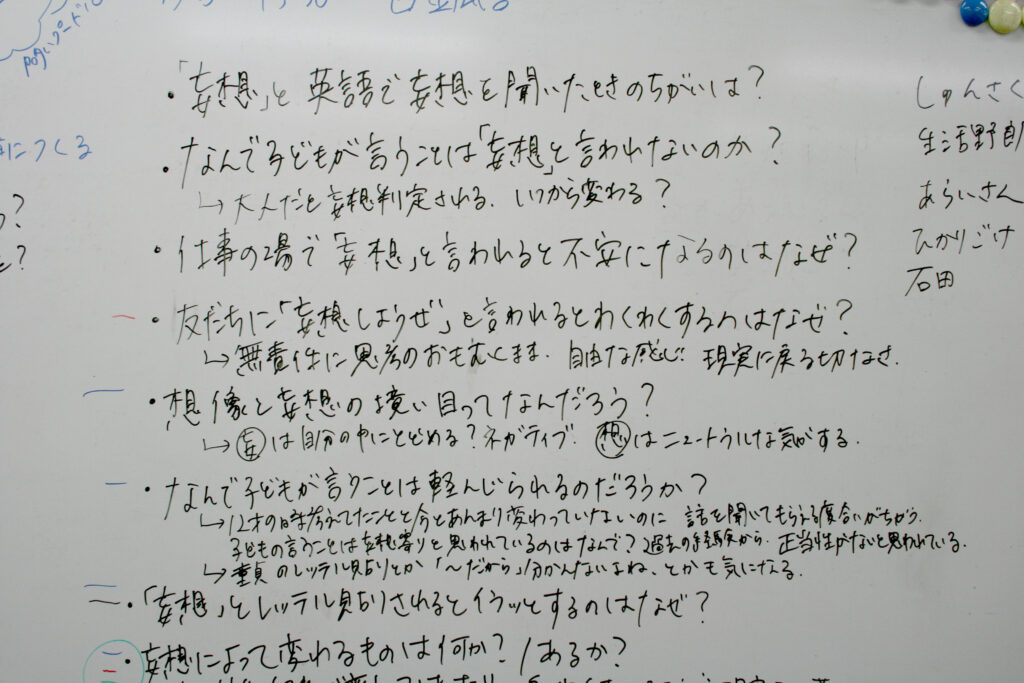 ・「妄想」と英語で妄想を聞いたときのちがいは？
・なんで子どもが言うことは「妄想」と言われないのか？
↳大人だと妄想判定される。いつから変わる？
・仕事の場で「妄想」と言われると不安になるのはなぜ？
・友だちに「妄想しようぜ」と言われるとわくわくするのはなぜ？
↳無責任に思考のおもむくまま。自由な感じ！現実に戻る切なさ。
・想像と妄想の境い目ってなんだろう？
↳妄は自分の中にとどめる？ネガティブ。想はニュートラルな気がする。
・なんで子どもが言うことは軽んじられるのだろうか？
↳12才の時考えてたことと今とあんまり変わっていないのに 話を聞いてもらえる度合いがちがう。
子どもの言うことは妄想寄りと思われているのはなんで？過去の経験から。正当性がないと思われている。
↳童貞のレッテル貼りとか「〜だから」分かんないよね、とかも気になる。
・「妄想」とレッテル貼りされるとイラッとするのはなぜ？
・妄想によって変わるものは何か？/あるか？
につくる
しゅんさく
生活野郎
あらいさん
ひかりごけ
石田